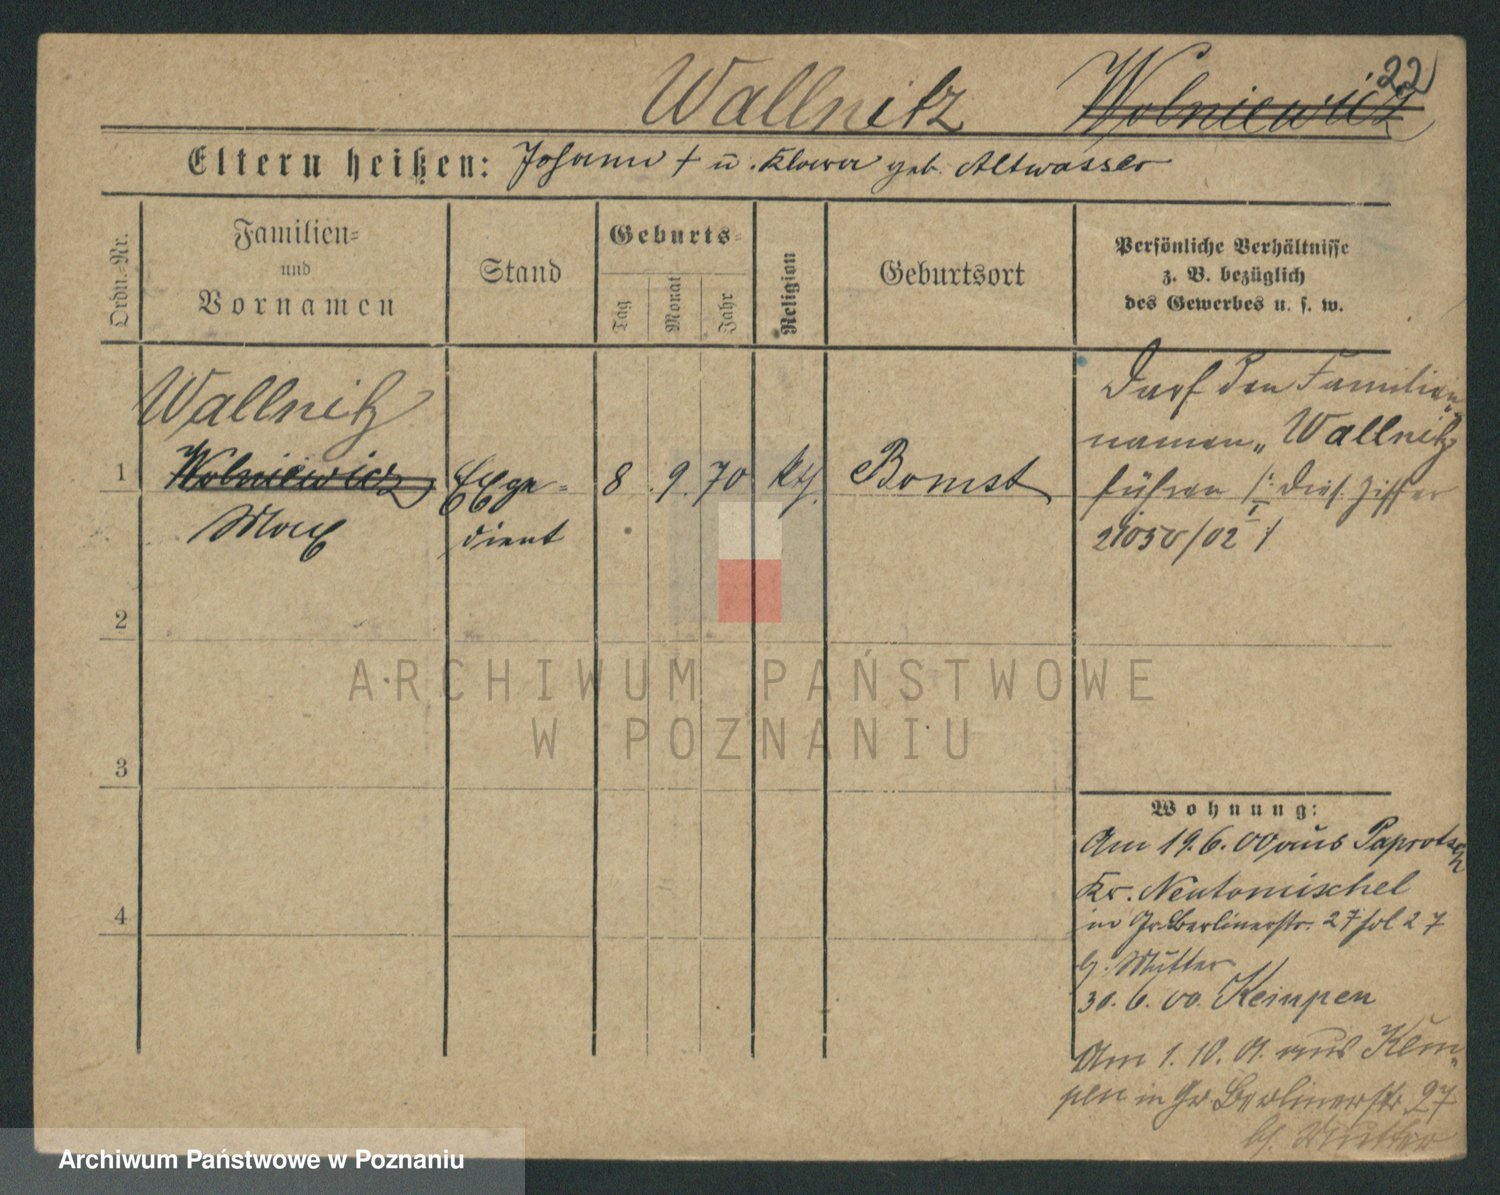 22
Wallnitz Wolniewicz
Eltern heißen: Johann † u. Klara geb. Altwasser
Ordn.-Nr.
Familien-
und
Vornamen
Stand
Geburts-
Tag
Monat
Jahr
Religion
Geburtsort
Persönliche Verhältnisse
z. B. bezüglich
des Gewerbes u. s. w.
Wallnitz
1 Wolniewicz Expe- 8. 9. 70 kth. Bomst
Max dient
Darf den Familien
namen „Wallnitz
führen
2
3
4
Wohnung:
Am 19.6.00 aus Paprotsch
Kr. Neutomischel
in Gr. Berlinerstr. 27 fol 27
b. Mutter
30.6.00. Kempen
Am 1.10.01. aus Kem-
pen in Gr Berlinerstr 27
b. Mutter
ARCHIWUM PAŃSTWOWE
W POZNANIU
Archiwum Państwowe w Poznaniu